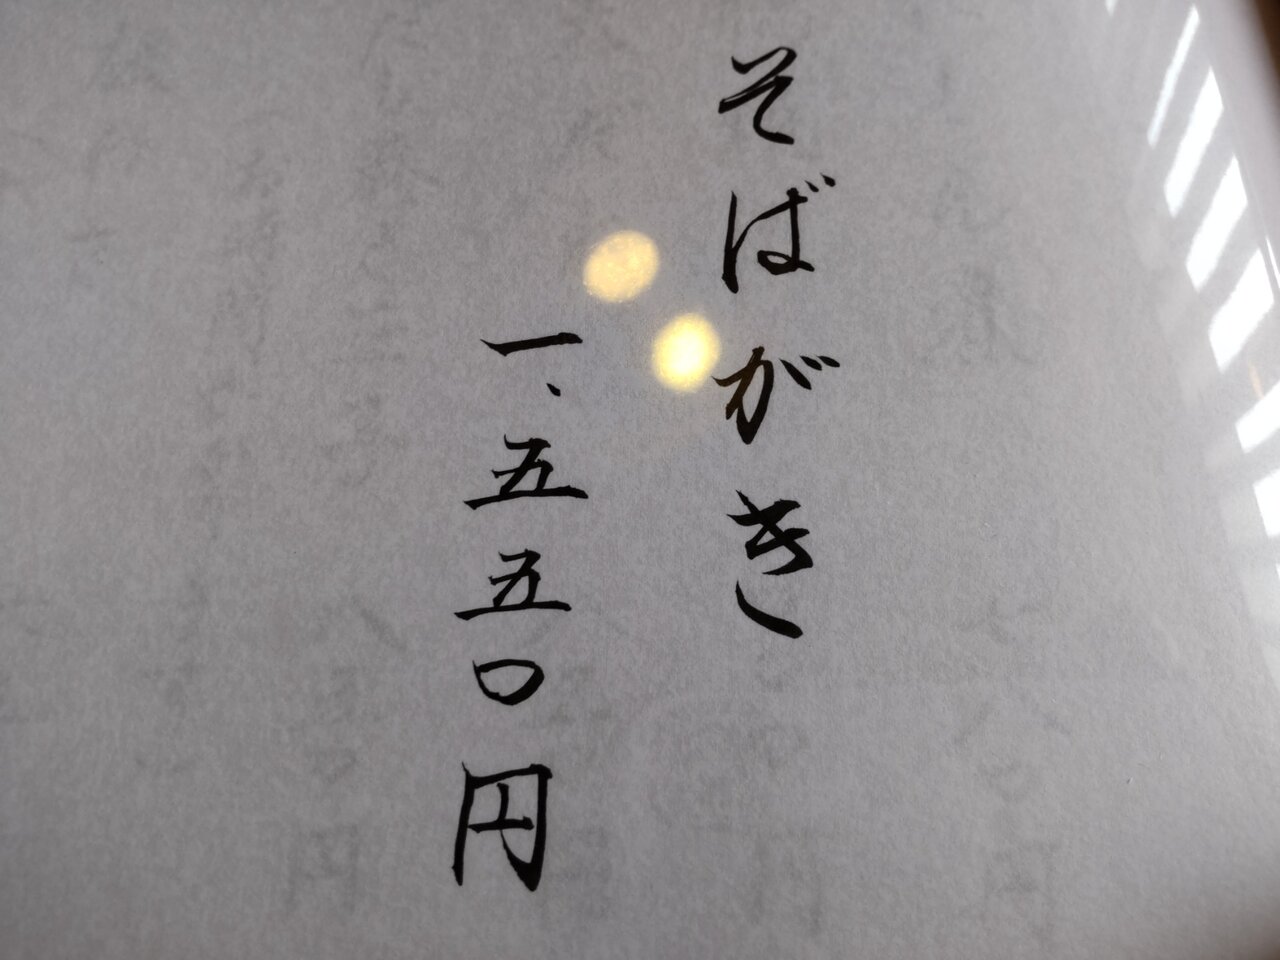 そばがき
一、五五〇円